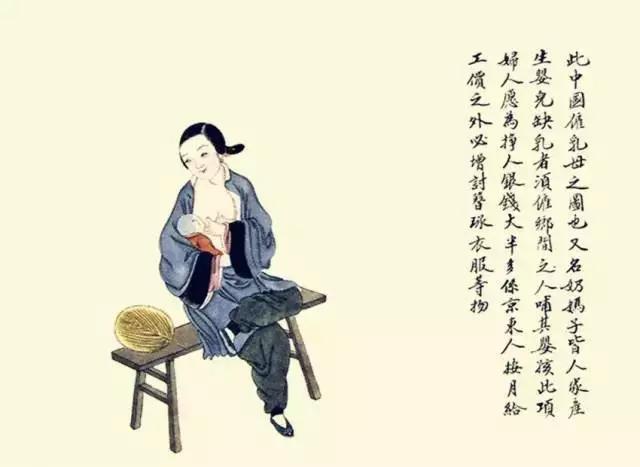 此中國僱乳母之圖也又名奶媽子皆人家産
生嬰兒缺乳者須僱鄉間之人哺其嬰孩此項
婦人愿為掙人銀錢大半多係京東人按月給
工價之外必增討簪环衣服等物